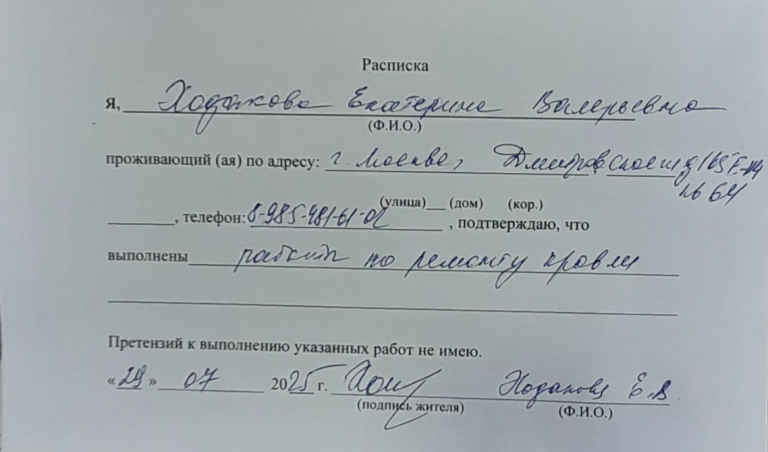 Расписка
Я, Ходакова Екатерина Валерьевна
(Ф.И.О.)
проживающий (ая) по адресу: г. Москва, Дмитровское ш, 165
64
(улица) (дом) (кор.)
, телефон: 8-985-481-61-02, подтверждаю, что
выполнены работы по ремонту кровли
Претензий к выполнению указанных работ не имею.
«29» 07 2025 г. Ходакова Е.В
(подпись жителя) (Ф.И.О.)